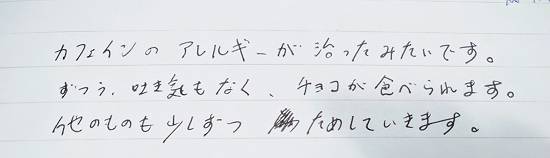 カフェインの アレルギーが 治ったみたいです。
ずつう、吐き気もなく、チョコが食べられます。
他のものも少しずつ ためしていきます。